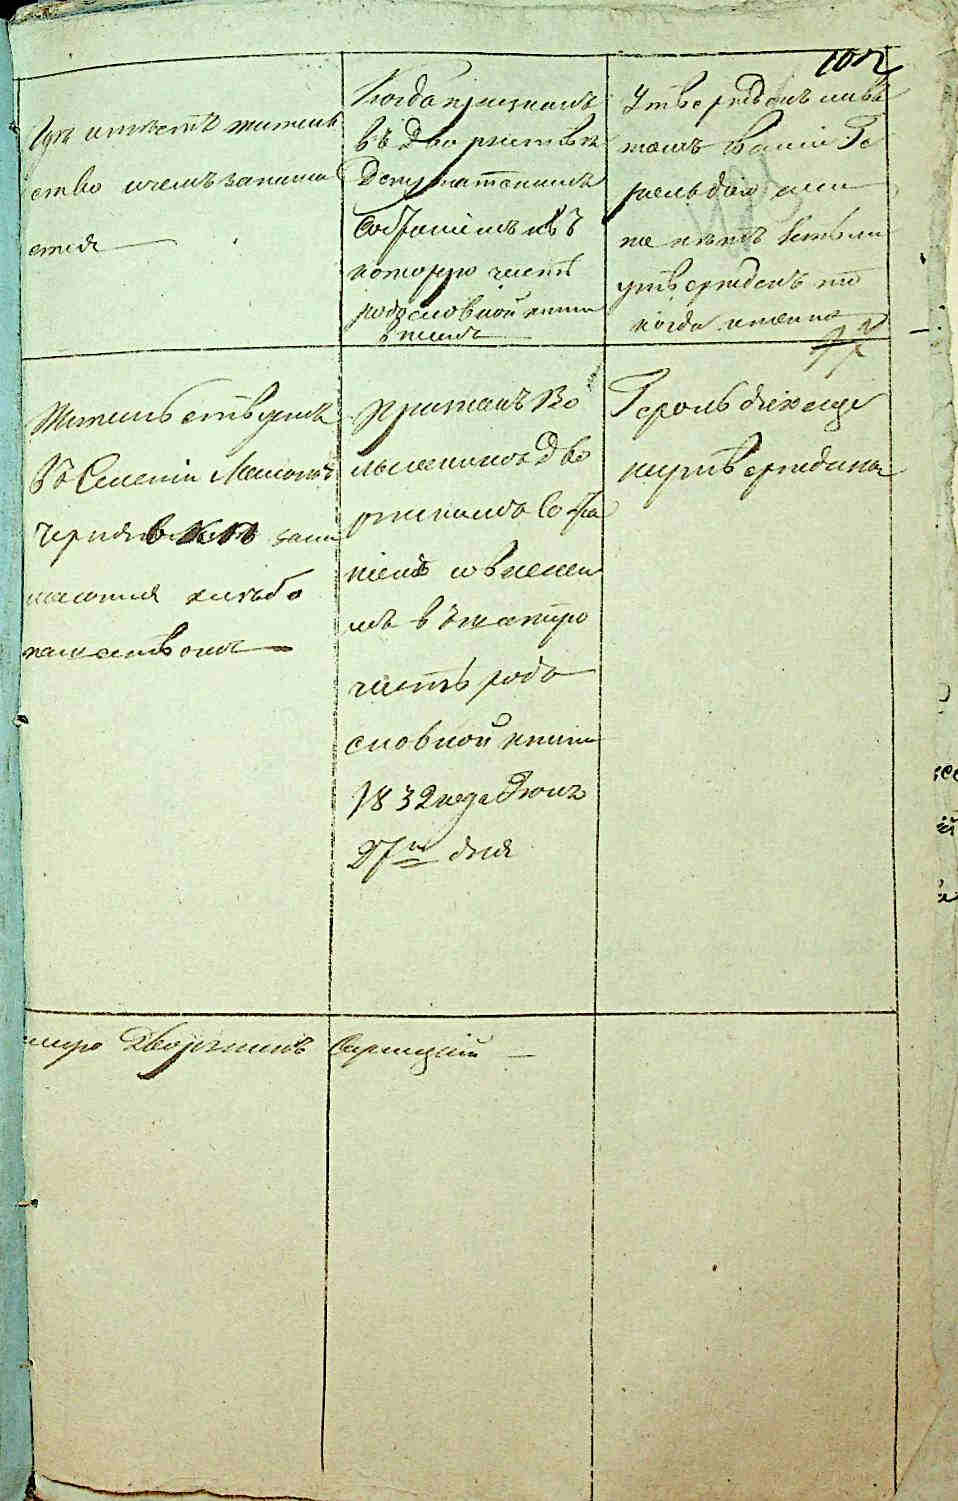 102
Где имѣетъ житель
ство и чемъ занима
ется
Когда признанъ
въ Дворянствѣ
Депутатскимъ
Собраніемъ и въ
которую часть
родословной книги
внесенъ
Утвержденъ ли въ
томъ званіи Ге
рольдіею или
не нѣтъ Естьли
утвержденъ то
когда именно
Жительствуетъ
въ Селеніи Малой
Чернявк зани
мается хлѣбо
пашествомъ
Признанъ Во
лынскимъ Дво
рянскимъ Собра
ніемъ и внесен
въ
часть родо
словной книги
1832 года Июнь
27го дня
Герольдіею еще
неутвержденъ
Дворянинъ Сарнецкій